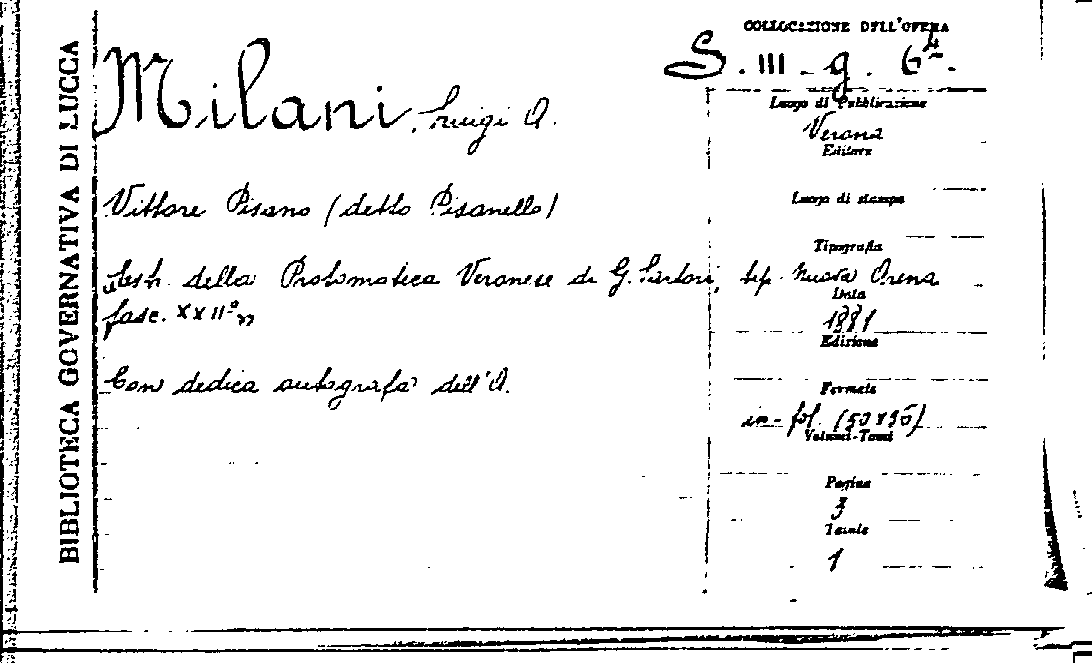 BIBLIOTECA GOVERNATIVA DI LUCCA
COLLOCAZIONE DELL'OPERA
S. III - g. 6⁴.
Milani, Luigi A.
Luogo di Pubblicazione
Verona
Editore
Vittore Pisano (detto Pisanello)
Luogo di stampa
Tipografia
della Protomoteca Veronese di G. Sartori, tip. Nuova Arena
Data
fasc. XXII°
1881
Edizione
Con dedica autografa dell'A.
Formato
in-fol.
Volumi-Tomi
Pagine
3
Tavole
1